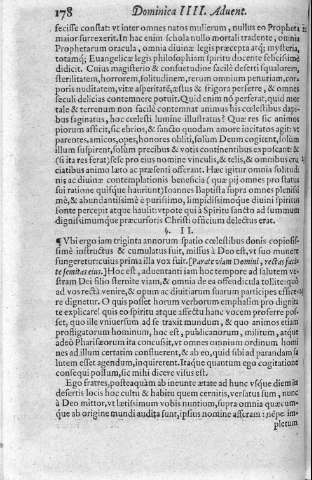 178 Dominica IIII. Aduent.
fecisse constat: vt inter omnes natos mulierum, nullus eo Propheta
maior surrexerit. In hac enim schola nullo mortali tradente, omnia
Prophetarum oracula, omnia diuinæ legis præcepta atq; mysteria,
totamq; Euangelicæ legis philosophiam spiritu docente felicissimè
didicit. Cuius magisterio & consuetudine facilè deserti squalorem,
sterilitatem, horrorem, solitudinem, rerum omnium penuriam, cor-
poris nuditatem, vitæ asperitatē, æstus & frigora perferre, & omnes
seculi delicias contemnere potuit. Quid enim nō perferat, quid mor
tale & terrenum non facilè contemnat animus his cœlestibus dapi-
bus saginatus, hoc cœlesti lumine illustratus? Quæ res sic animos
piorum afficit, sic ebrios, & sancto quodam amore incitatos agit: vt
parentes, amicos, opes, honores obliti, solùm Deum cogitent, solùm
illum suspirent, solùm precibus & votis continentibus exposcant: &
(si ita res ferat) sese pro eius nomine vinculis, & telis, & omnibus cru
ciatibus animo læto ac præsenti offerant. Hæc igitur omnia solitudi
nis ac diuinæ contemplationis beneficia (quæ pij omnes pro status
sui ratione quisque hauriunt) Ioannes Baptista supra omnes plenissi
mè, & abundantissimè è purissimo, limpidissimoque diuini spiritus
fonte percepit atque hausit: vtpote qui à Spiritu sancto ad summum
dignissimumque præcursoris Christi officium delectus erat.
§. II.
¶ Vbi ergo iam triginta annorum spatio cœlestibus donis copiosis-
simè instructus & cumulatus fuit, missus à Deo est, vt suo munere
fungeretur: cuius prima illa vox fuit. [Parate viam Domini, rectas facite
semitas eius.] Hoc est, aduentanti iam hoc tempore ad salutem ve-
stram Dei filio sternite viam, & omnia de ea offendicula tollite: quò
ad vos rectà venire, & opum ac diuitiarum suarum participes effice-
re dignetur. O quis posset horum verborum emphasim pro dignita
te explicare! quis eo spiritu atque affectu hanc vocem proferre pos-
set, quo ille vniuersum ad se traxit mundum, & quo animos etiam
profligatorum hominum, hoc est, publicanorum, militum, atque
adeò Pharisæorum ita concussit, vt omnes omnium ordinum homi
nes ad illum certatim confluerent, & ab eo, quid sibi ad parandam sa
lutem esset agendum, inquirerent. Itaque quantum ego cogitatione
consequi possum, sic mihi dicere visus est.
Ego fratres, posteaquàm ab ineunte ætate ad hunc vsque diem in
desertis locis hoc cultu & habitu quem cernitis, versatus sum, nunc
à Deo mittor, vt lætissimum vobis nuntium, supra omnia quæcum-
que ab origine mundi audita sunt, ipsius nomine afferam: nēpe im-
pletum